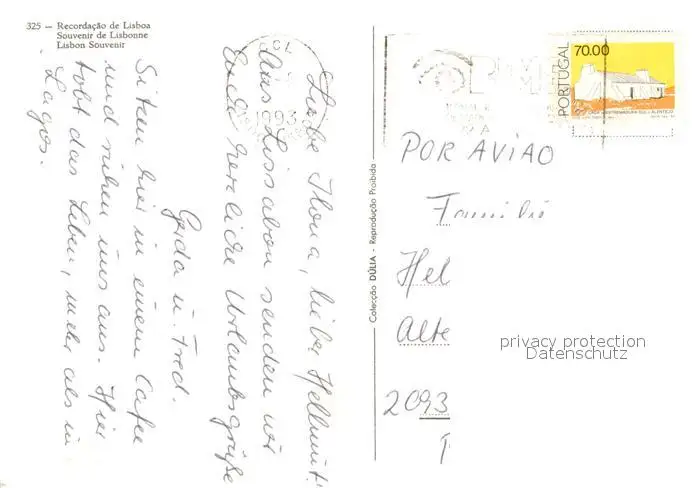 325 — Recordação de Lisboa
Souvenir de Lisbonne
Lisbon Souvenir
Liebe Ilona, lieber Hellmut!
Aus Lissabon senden wir
Euch herzliche Urlaubsgrüße
Gerda u. Fred.
Sitzen hier in einem Cafee
und ruhen uns aus. Hier
tobt das Leben, mehr als in
Lagos.
1993
Colecção DÚLIA - Reprodução Proibida
PORTUGAL
70.00
POR AVIAO
Familie
Hel
Alte
2093
privacy protection
Datenschutz